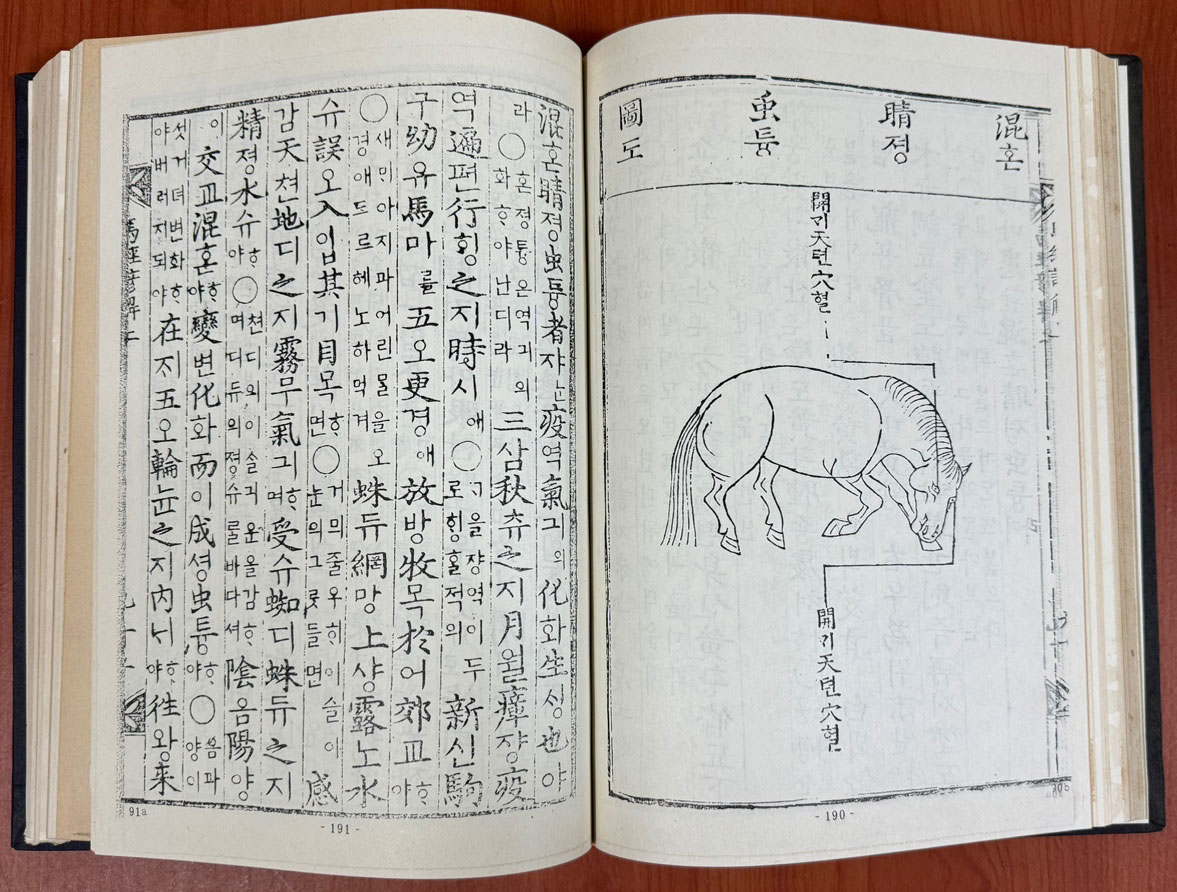 混혼
睛졍
虫튱
圖도
開ᄀᆡ天텬穴혈
開ᄀᆡ天텬穴혈
- 190 -
混혼睛졍虫튱者쟈ᄂᆞᆫ疫역氣긔의化화生ᄉᆡᆼ也야
라○혼졍튱은역긔의화ᄒᆞ야난디라三삼秋츄之지月월瘴쟝疫
역遍편行ᄒᆡᆼ之지時시애○ᄀᆞ을쟝역이두로ᄒᆡᆼᄒᆞᆯ적의新신駒
구幼유馬마를五오更경애放방牧목於어郊교ᄒᆞ야
○새ᄆᆡ아지과어린ᄆᆞᆯ을오경애드르헤노하먹겨蛛듀網망上샹露노水
슈誤오入입其기目목ᄒᆞ면○거믜줄우희이슬이눈의그ᄅᆺ들면感
감天텬地디之지霧무氣긔ᄒᆞ며受슈蜘디蛛듀之지
精졍水슈ᄒᆞ야○텬디의이슬긔운을감ᄒᆞ며디듀의졍슈를바다셔陰음陽양
이交교混혼ᄒᆞ야變변化화而이成셩虫튱ᄒᆞ야○음과양이
섯거뎌변화ᄒᆞ야버러지되야在ᄌᆡ五오輪뉸之지內ᄂᆡᄒᆞ야往왕来
91a
- 191 -